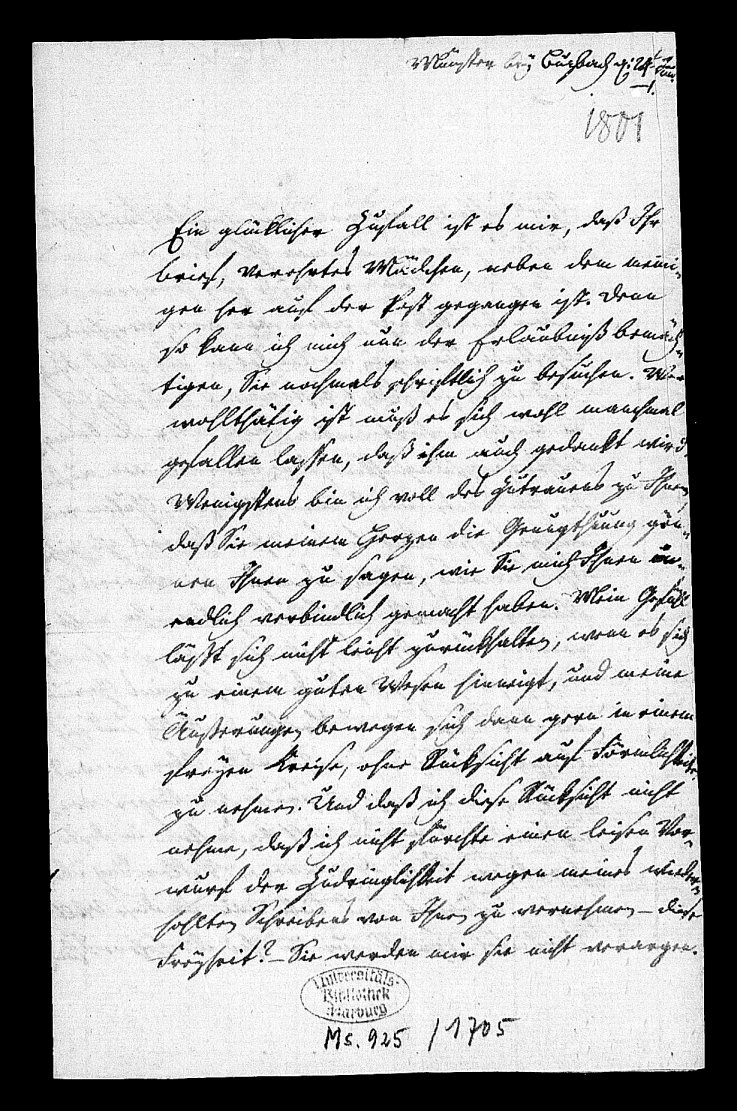 Münster bey Butzbach d. 24 Jun.
1.
1801
Ein glücklicher Zufall ist es mir, daß Ihr
Brief, verehrtes Mädchen, neben dem meini-
gen her auf der Post gegangen ist. Denn
so kann ich mich nun der Erlaubniß bemäch-
tigen, Sie nochmals schriftlich zu besuchen. Wer
wohlthätig ist muß es sich wohl manchmal
gefallen lassen, daß ihm auch gedankt wird.
Wenigstens bin ich voll des Zutrauens zu Ihnen,
daß Sie meinem Herzen die Genugthuung gön-
nen Ihnen zu sagen, wie Sie mich Ihnen un-
endlich verbindlich gemacht haben. Mein Gefühl
läßt sich nicht leicht zurückhalten, wenn es sich
zu einem guten Wesen hinneigt, und meine
Äußerungen bewegen sich dann gern in einem
freyen Kreise, ohne Rücksicht auf Förmlichkeit
zu nehmen. Und daß ich diese Rücksicht nicht
nehme, daß ich nicht fürchte einen leisen Vor-
wurf der Zudringlichkeit wegen meines wieder-
hohlten Schreibens von Ihnen zu vernehmen – diese
Freyheit? Sie werden mir sie nicht verargen.
Universitäts-
Bibliothek
Marburg
Ms. 925 / 1705